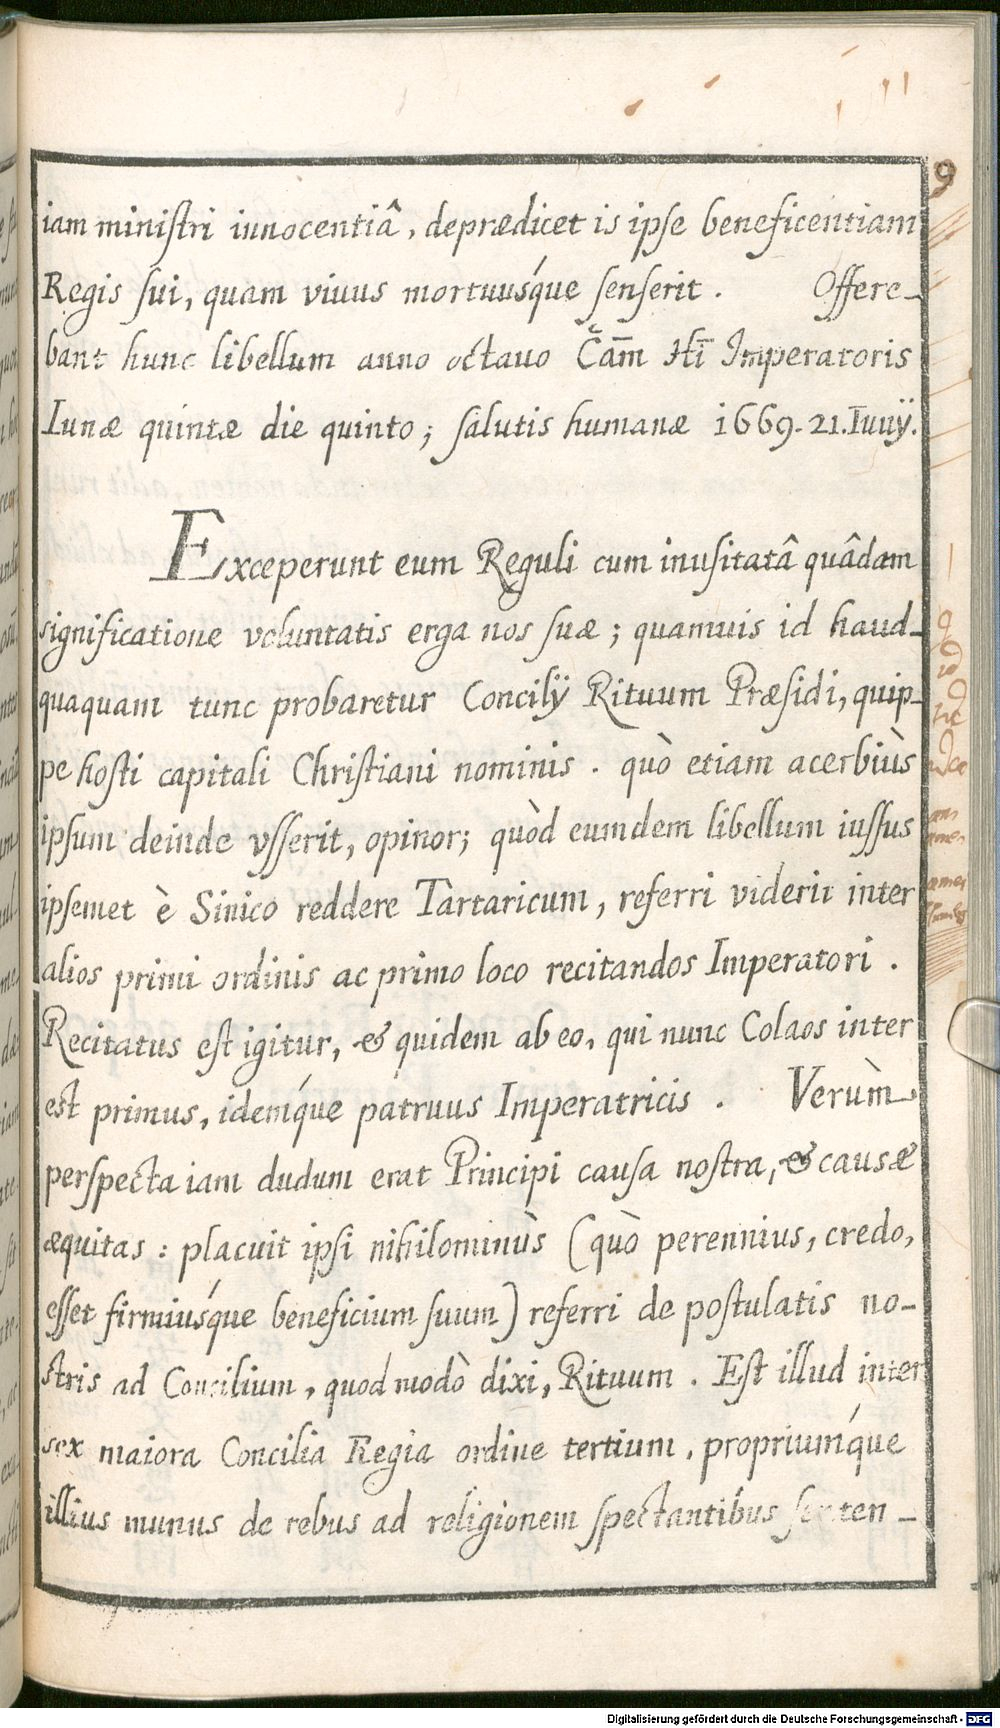 9
iam miniſtri innocentiâ, deprædicet is ipſe beneficentiam
Regis ſui, quam viuus mortuuśque ſenſerit. Offere-
bant hunc libellum anno octauo Čam̄ Hī Imperatoris
Lunæ quintæ die quinto; ſalutis humanæ 1669. 21. Iunÿ.
Exceperunt eum Reguli cum inuſitatâ quâdam
significatione voluntatis erga nos ſuæ; quamuis id haud-
quaquam tunc probaretur Concilÿ Rituum Præſidi, quip-
pe hoſti capitali Chriſtiani nominis. quò etiam acerbiùs
ipſum deinde vſſerit, opinor; quòd eumdem libellum iuſſus
ipſemet è Sinico reddere Tartaricum, referri viderit inter
alios primi ordinis ac primo loco recitandos Imperatori.
Recitatus eſt igitur, & quidem ab eo, qui nunc Colaos inter
est primus, idemq́ue patruus Imperatricis. Verùm
perſpecta iam dudum erat Principi cauſa noſtra, & causæ
æquitas: placuit ipſi nihilominùs (quò perennius, credo,
eſſet firmiuśque beneficium ſuum) referri de poſtulatis no-
stris ad Concilium, quod modò dixi, Rituum. Eſt illud inter
sex maiora Concilia Regia ordine tertium, propriumq́ue
illius munus de rebus ad religionem ſpectantibus ſenten-
Digitalisierung gefördert durch die Deutsche Forschungsgemeinschaft - DFG